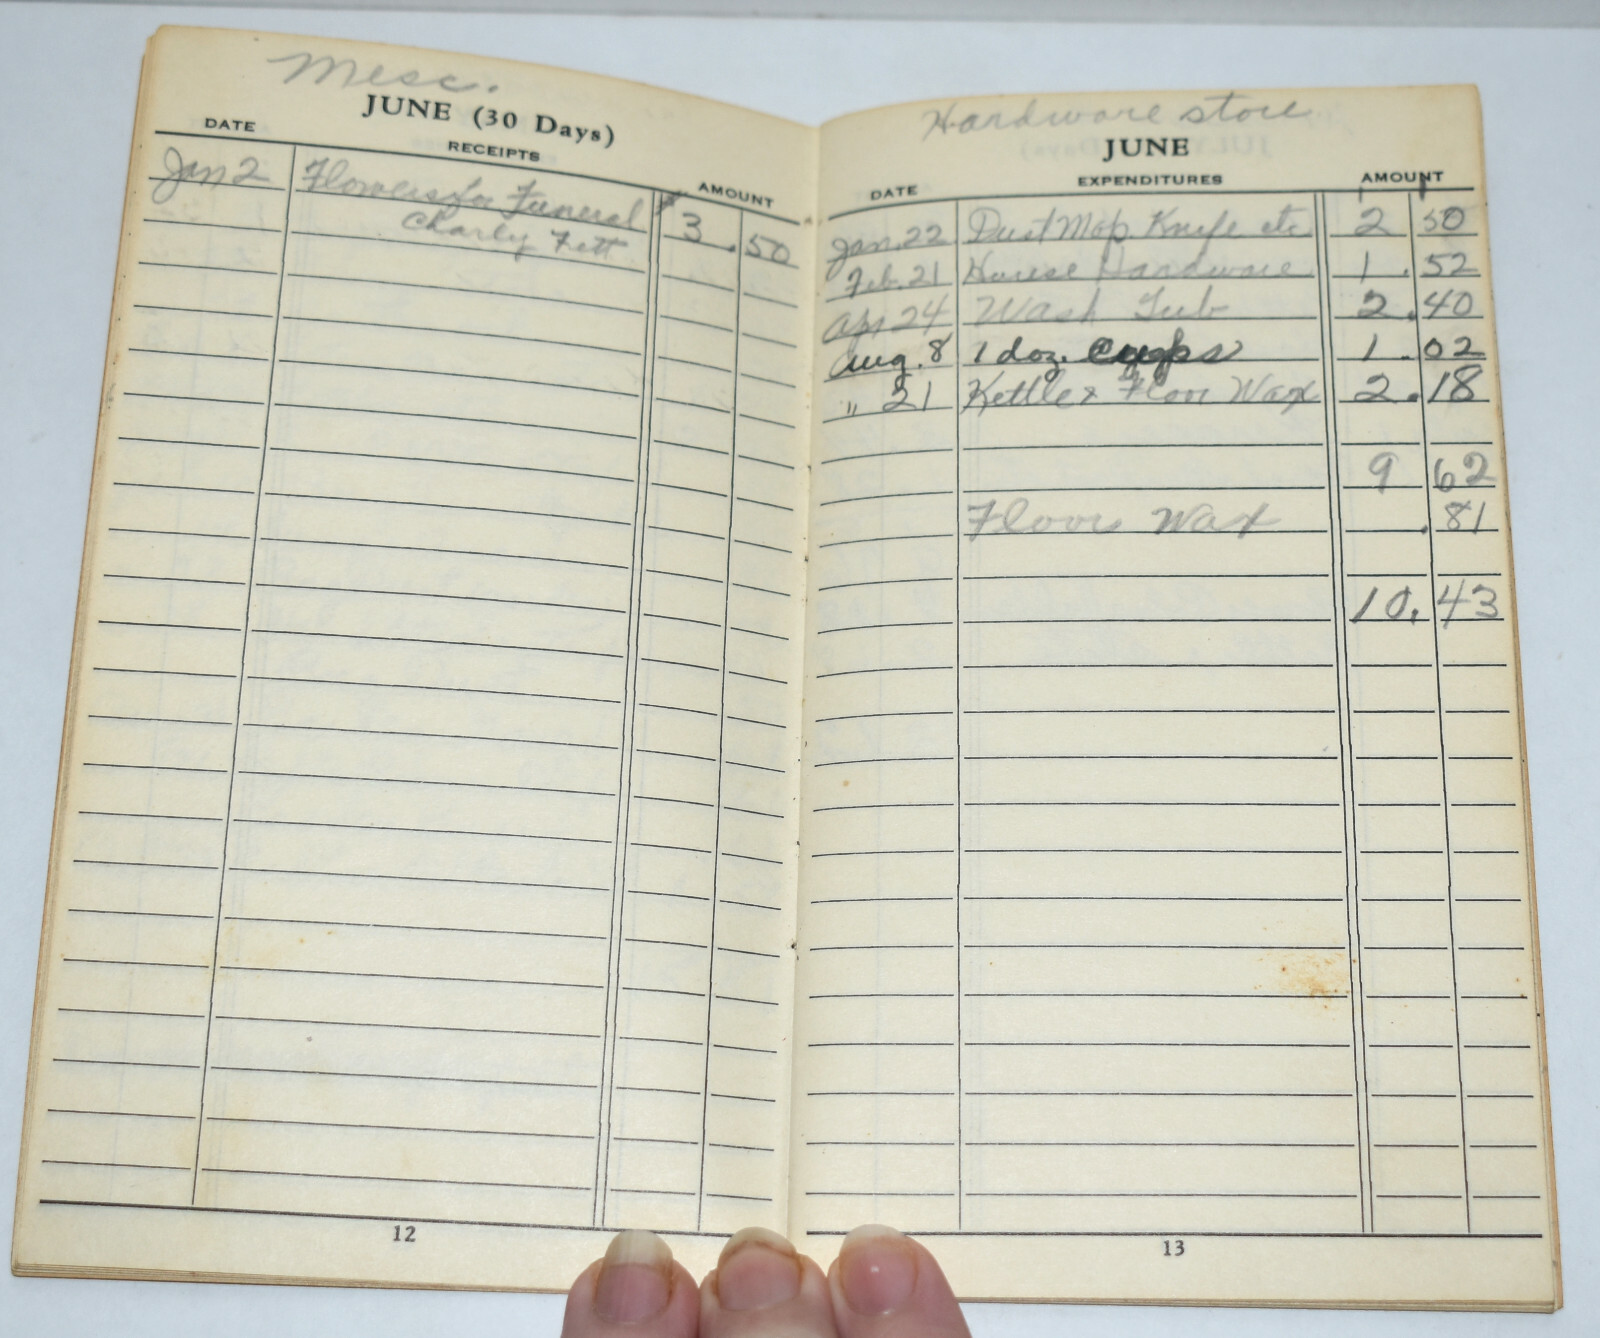 Mesc.
JUNE (30 Days)
DATE RECEIPTS AMOUNT
Jan 2 Flowers for Funeral $ 3.50
Charly Fett
12
Hardware store
JUNE
DATE EXPENDITURES AMOUNT
Jan. 22 Dust Mop. Knife etc 2 50
Feb. 21 House Hardware 1.52
Apr 24 Wash Tub 2.40
Aug. 8 1 doz. Cups 1.02
" 21 Kettle & Floor Wax 2.18
9 62
Floor Wax .81
10.43
13